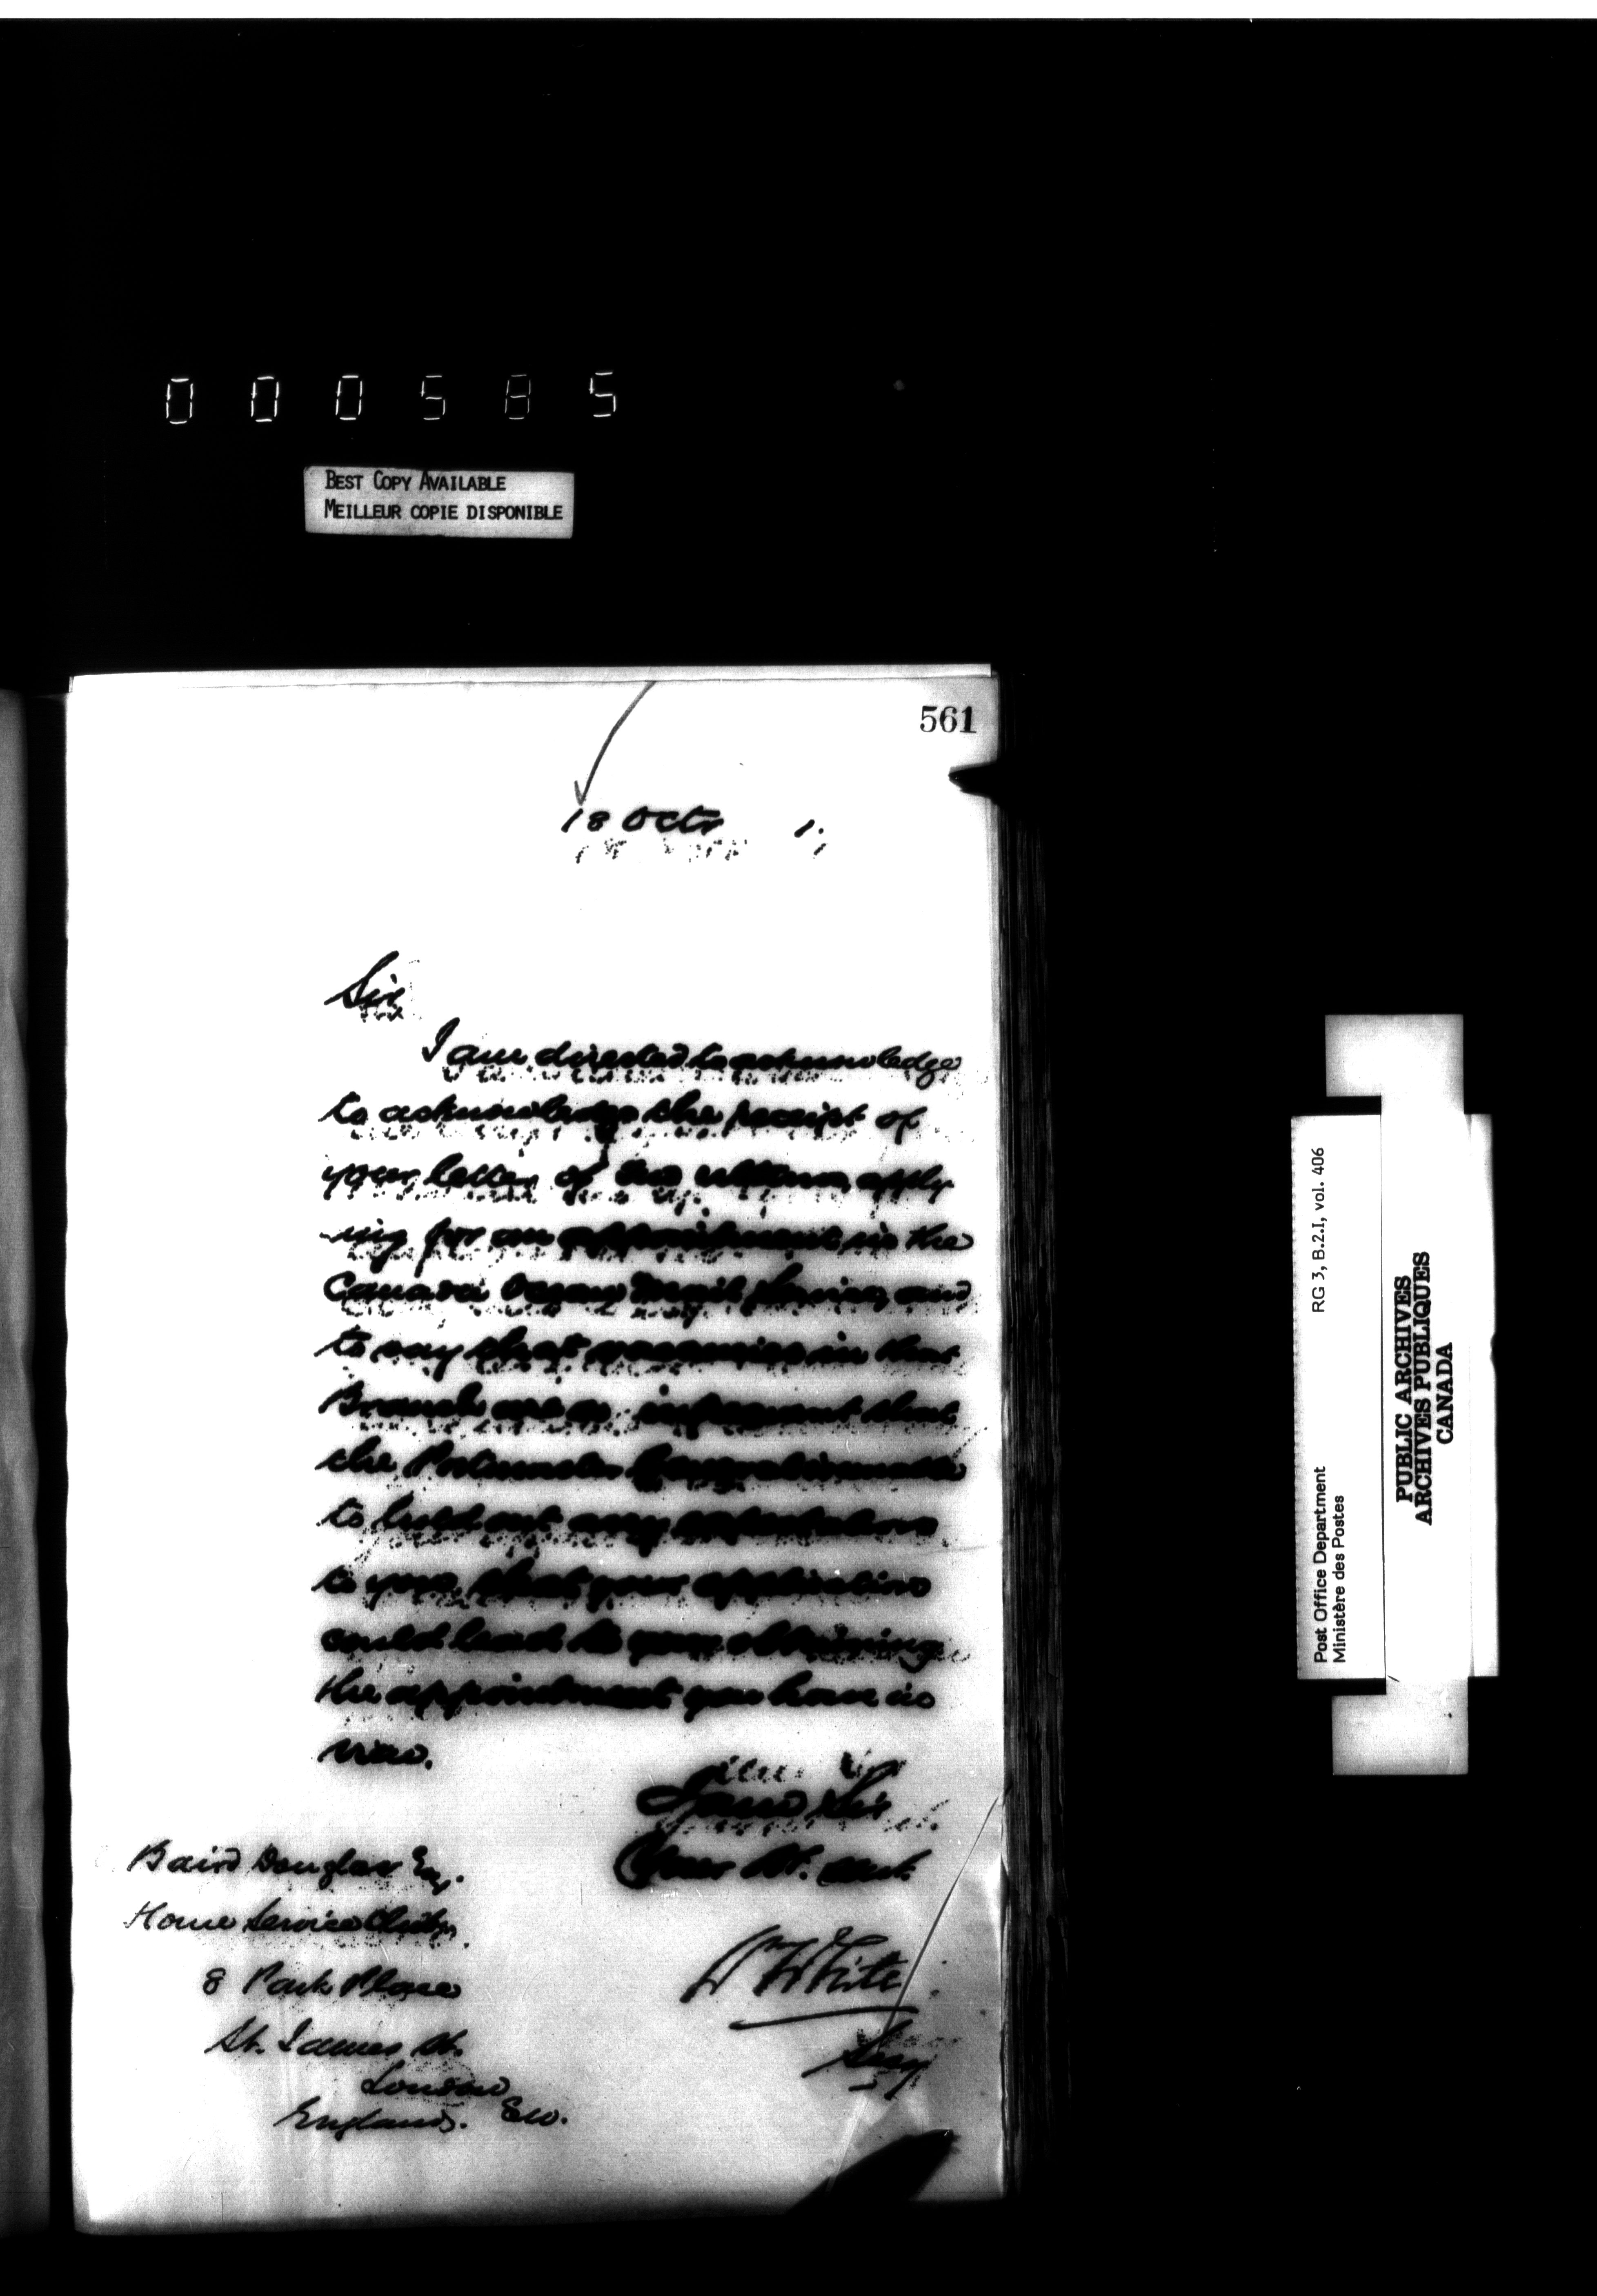 000585
BEST COPY AVAILABLE
MEILLEUR COPIE DISPONIBLE
561
18 Octr 1.
Sir
I am directed to acknowledge
to acknowledge the receipt of
your letter of ultimo, apply
-ing for an appointment in the
Canada Ocean Mail Service, and
to say that vacancies in that
Branch are so infrequent that
the Postmaster General is unable
to hold out any expectations
to you, that your application
could lead to your obtaining
the appointment you have in
view.
I am Sir
Your Ob. Servt.
W White
Secy
Baird Douglas Esq.
Home Service Club,
8 Park Place
St. James St.
London
England.
RG 3, B.2.I, vol. 406
Post Office Department
Ministère des Postes
PUBLIC ARCHIVES
ARCHIVES PUBLIQUES
CANADA